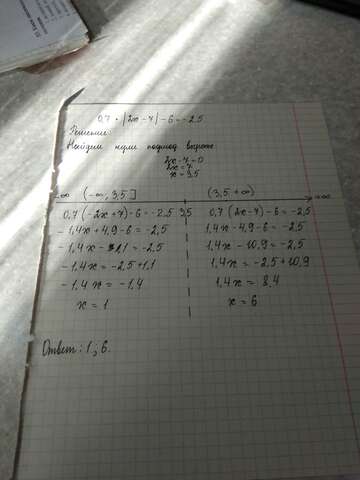 0,7 · |2x - 7| - 6 = -2,5
Решение
Найдем нули подмод. выраже
2x - 7 = 0
2x = 7
x = 3,5
-∞ (-∞, 3,5] (3,5, +∞) +∞
3,5
0,7(-2x+7) - 6 = -2,5
-1,4x + 4,9 - 6 = -2,5
-1,4x - 1,1 = -2,5
-1,4x = -2,5 + 1,1
-1,4x = -1,4
x = 1
0,7(2x-7) - 6 = -2,5
1,4x - 4,9 - 6 = -2,5
1,4x - 10,9 = -2,5
1,4x = -2,5 + 10,9
1,4x = 8,4
x = 6
Ответ: 1; 6.